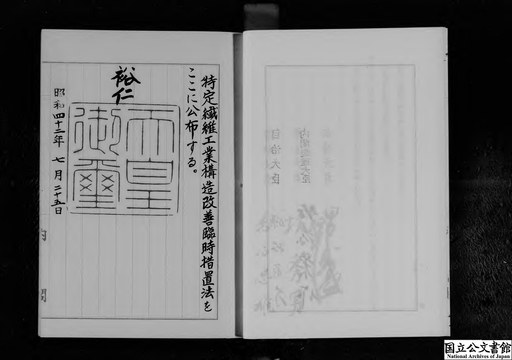 特定繊維工業構造改善臨時措置法を
ここに公布する。
裕仁
天皇
御璽
昭和四十二年 七月 二十五日
内 閣
内閣総理大臣
自治大臣
国立公文書館
National Archives of Japan